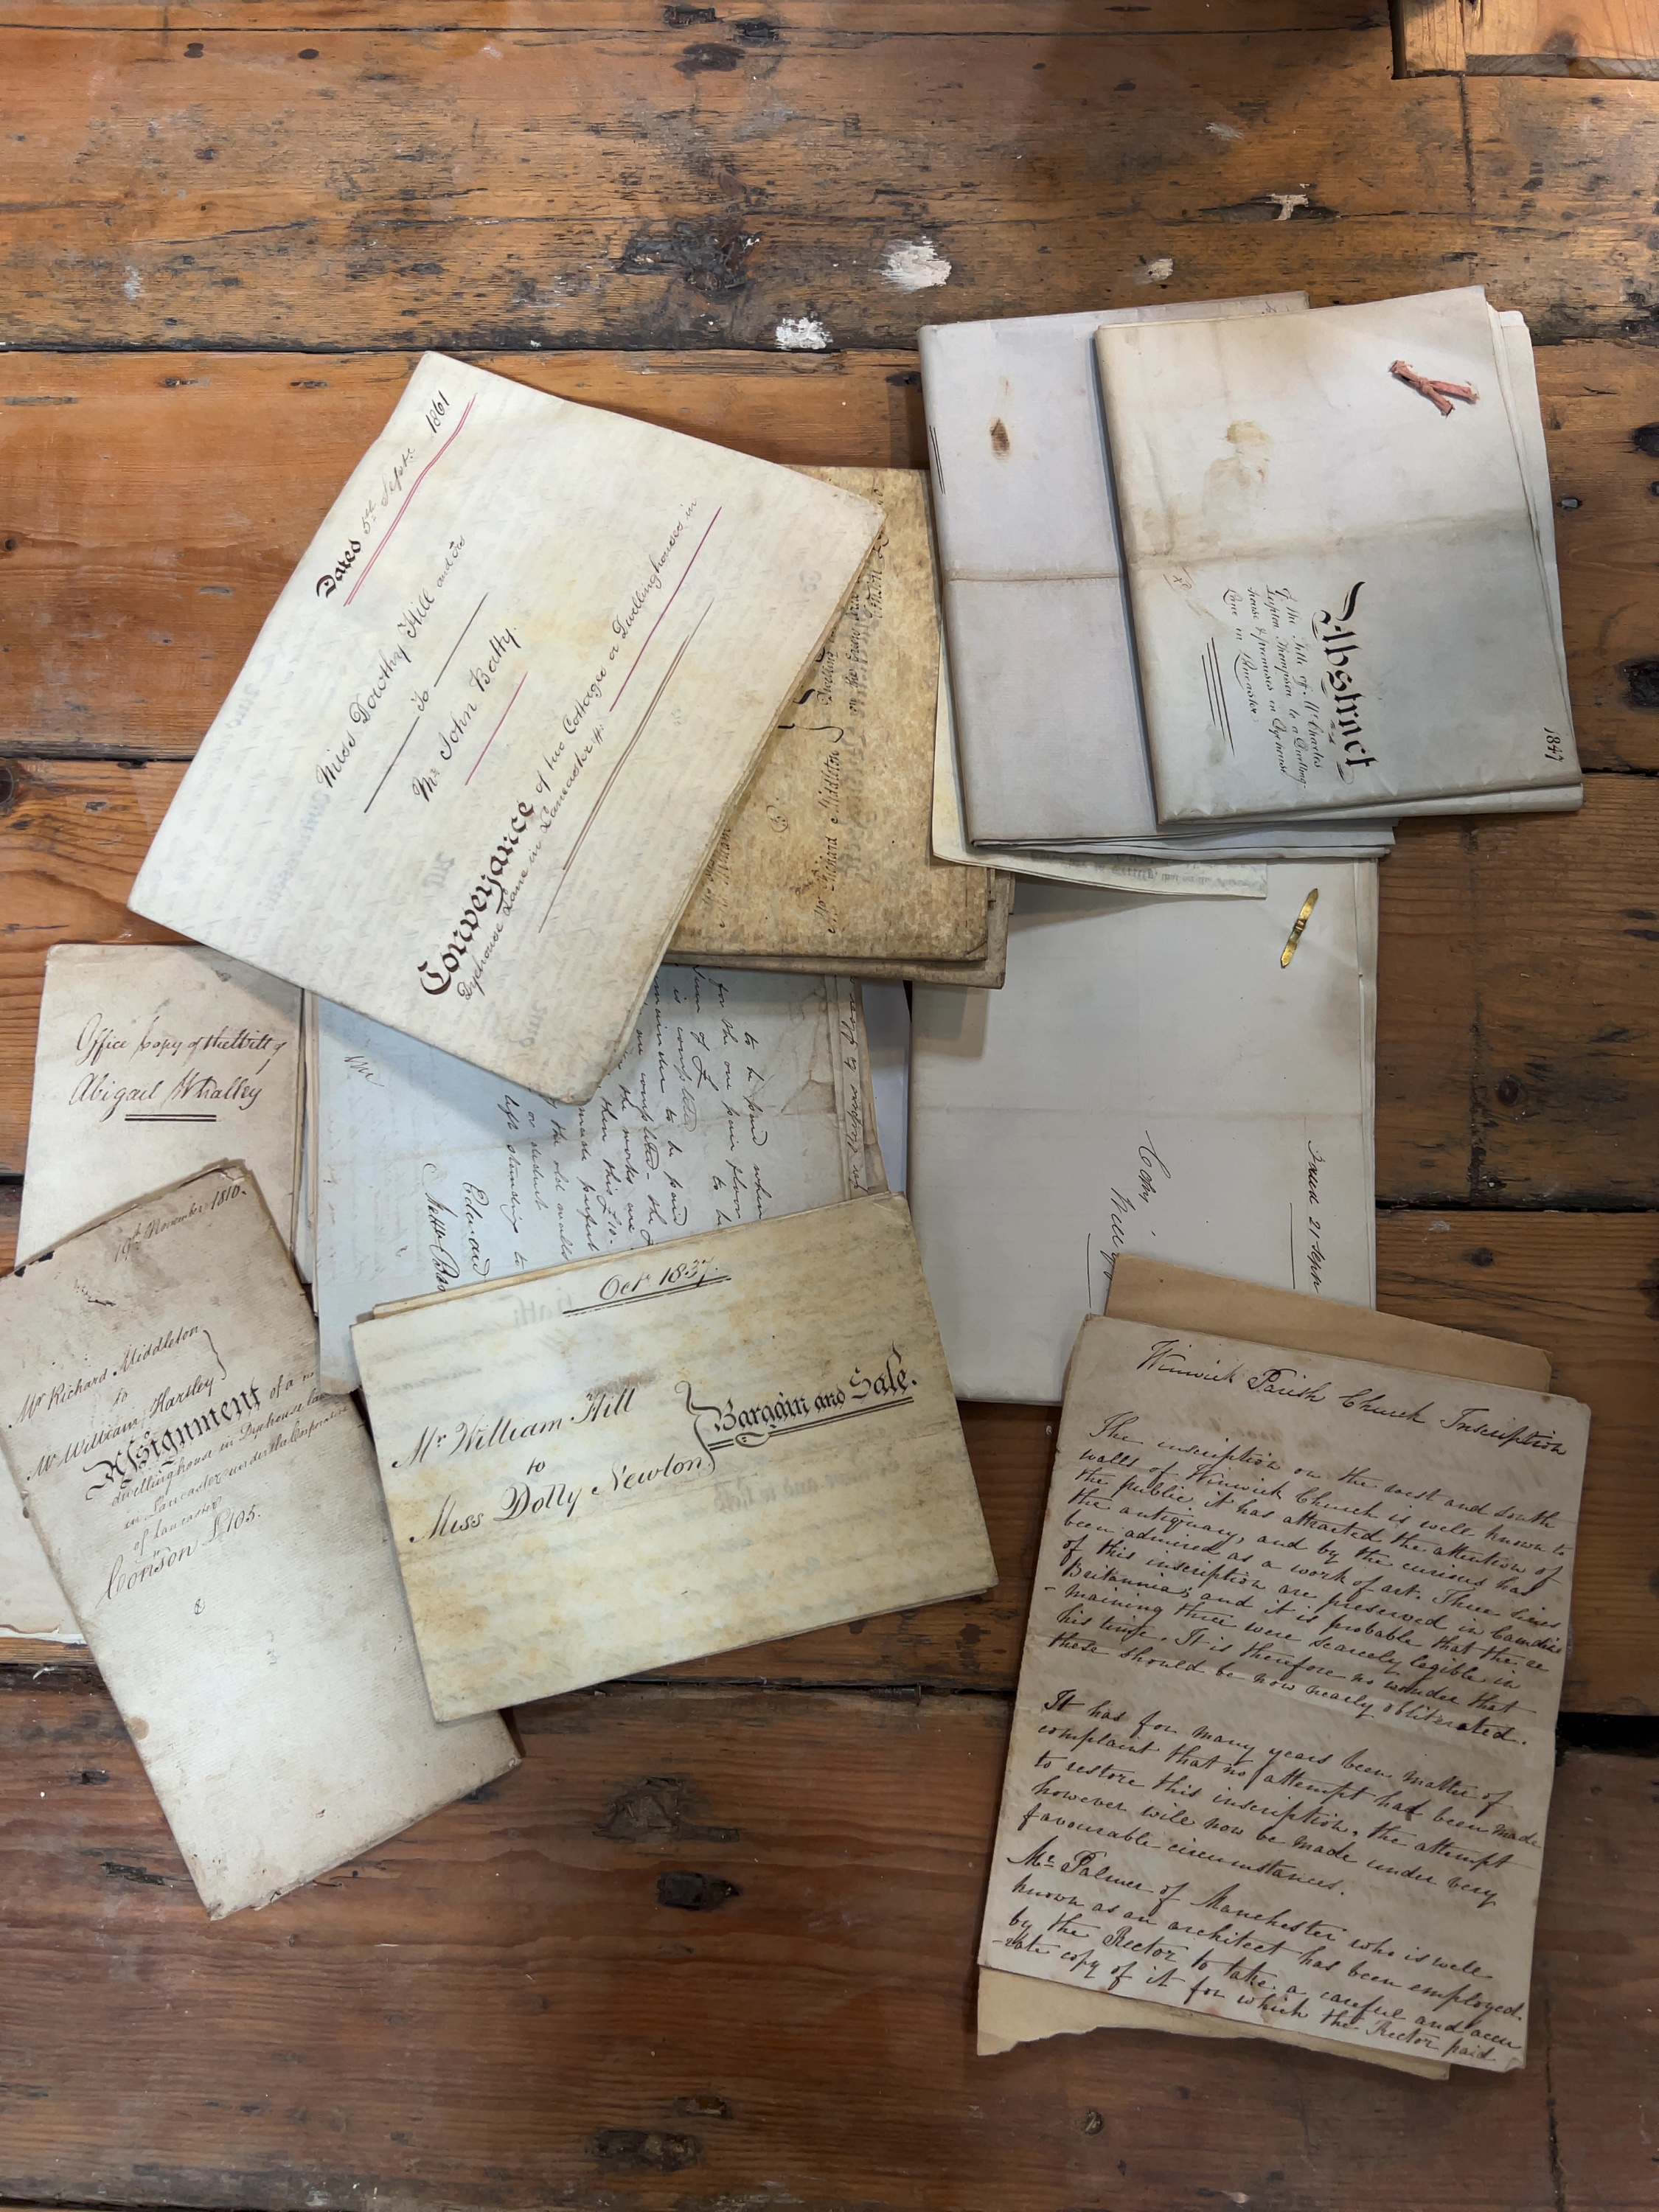 Dated 5th Septr. 1861
Miss Dorothy Hill and ors
to
Mr. John Batty.
Conveyance of two Cottages or Dwellinghouses in
Dyehouse Lane in Lancaster
1847
Abstract
of the Title of Mr Charles
Lupton Thompson to a Dwelling
house & premises in Dyehouse
Lane in Lancaster
Mr Richard Middleton
Office Copy of the Will of
Abigail Whalley
to be paid when
for the one pair floor
sum of £
is completed
remainder to be paid
are completed - the
the works are
then this £10.
made perfect
the old walls
or
left standing to
Edward
Copy
19th November 1810.
Mr Richard Middleton
to
Mr William Harsley
Assignment of a
dwellinghouse in Dyehouse lane
in Lancaster under the Corporation
of Lancaster
Conson £105.
Octr 1837.
Mr William Hill
to
Miss Dolly Newton
Bargain and Sale.
Winwick Parish Church Inscription
The inscription on the west and south
walls of Winwick Church is well known to
the public, it has attracted the attention of
the antiquary, and by the curious has
been admired as a work of art. Three lines
of this inscription are preserved in Camdens
Britannia; and it is probable that the re
-maining three were scarcely legible in
his time. It is therefore no wonder that
these should be now nearly obliterated.
It has for many years been matter of
complaint that no attempt had been made
to restore this inscription, the attempt
however will now be made under very
favourable circumstances.
Mr Palmer of Manchester who is well
known as an architect has been employed
by the Rector to take a careful and accu
-rate copy of it for which the Rector paid